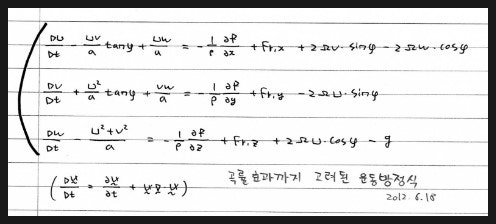 Du/Dt - uv/a tanφ + uw/a = -1/ρ ∂p/∂x + Fr,x + 2Ωv·sinφ - 2Ωw·cosφ
Dv/Dt + u²/a tanφ + vw/a = -1/ρ ∂p/∂y + Fr,y - 2Ωu·sinφ
Dw/Dt - u²+v²/a = -1/ρ ∂p/∂z + Fr,z + 2Ωu·cosφ - g
곡률효과까지 고려된 운동방정식
(DV/Dt = ∂V/∂t + V·∇·V)
2012. 6. 18